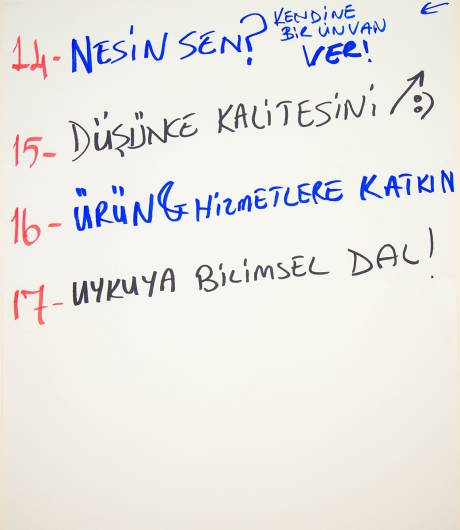 14- NESİN SEN? KENDİNE
BİR ÜNVAN
VER!
15- DÜŞÜNCE KALİTESİNİ
16- ÜRÜN & HİZMETLERE KATKIN
17- UYKUYA BİLİMSEL DAL!